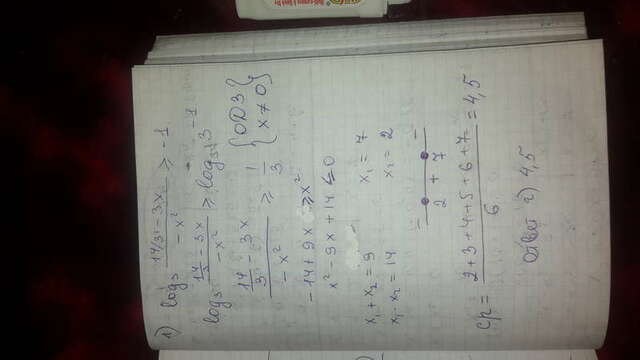 1) log₃ (14/3 - 3x)/(-x²) ≥ -1
log₃ (14/3 - 3x)/(-x²) ≥ log₃ 3⁻¹
(14/3 - 3x)/(-x²) ≥ 1/3 { ОДЗ x ≠ 0 }
-14 + 9x ≥ x²
x² - 9x + 14 ≤ 0
x₁ + x₂ = 9 x₁ = 7
x₁ · x₂ = 14 x₂ = 2
- + -
2 7
ср = (2+3+4+5+6+7)/6 = 4,5
Ответ г) 4,5